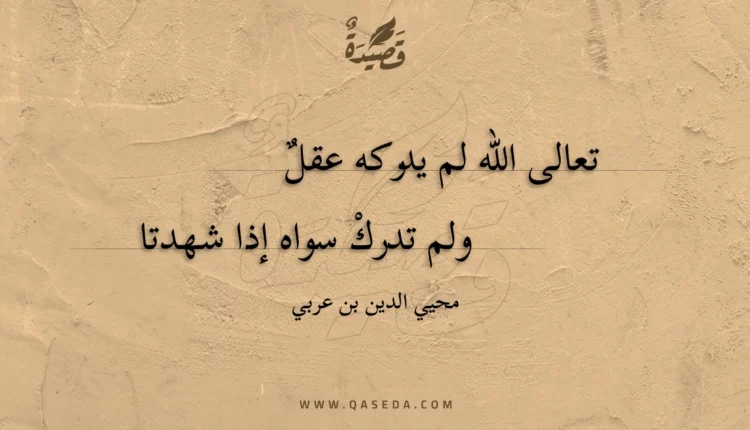 قَصِيْدَةٌ
تعالى الله لم يدركه عقلٌ
ولم تدركْ سواه إذا شهدتا
محيي الدين بن عربي
WWW.QASEDA.COM